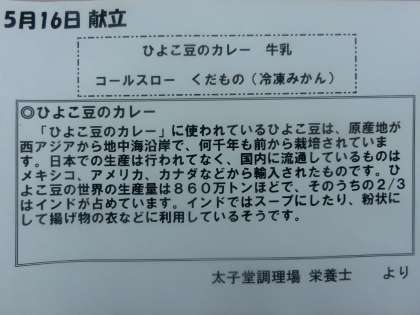 5月16日 献立
ひよこ豆のカレー　牛乳
コールスロー　くだもの（冷凍みかん）
◎ひよこ豆のカレー
「ひよこ豆のカレー」に使われているひよこ豆は、原産地が
西アジアから地中海沿岸で、何千年も前から栽培されていま
す。日本での生産は行われてなく、国内に流通しているものは
メキシコ、アメリカ、カナダなどから輸入されたものです。ひ
よこ豆の世界の生産量は８６０万トンほどで、そのうちの２/３
はインドが占めています。インドではスープにしたり、粉状に
して揚げ物の衣などに利用しているそうです。
太子堂調理場 栄養士　　より